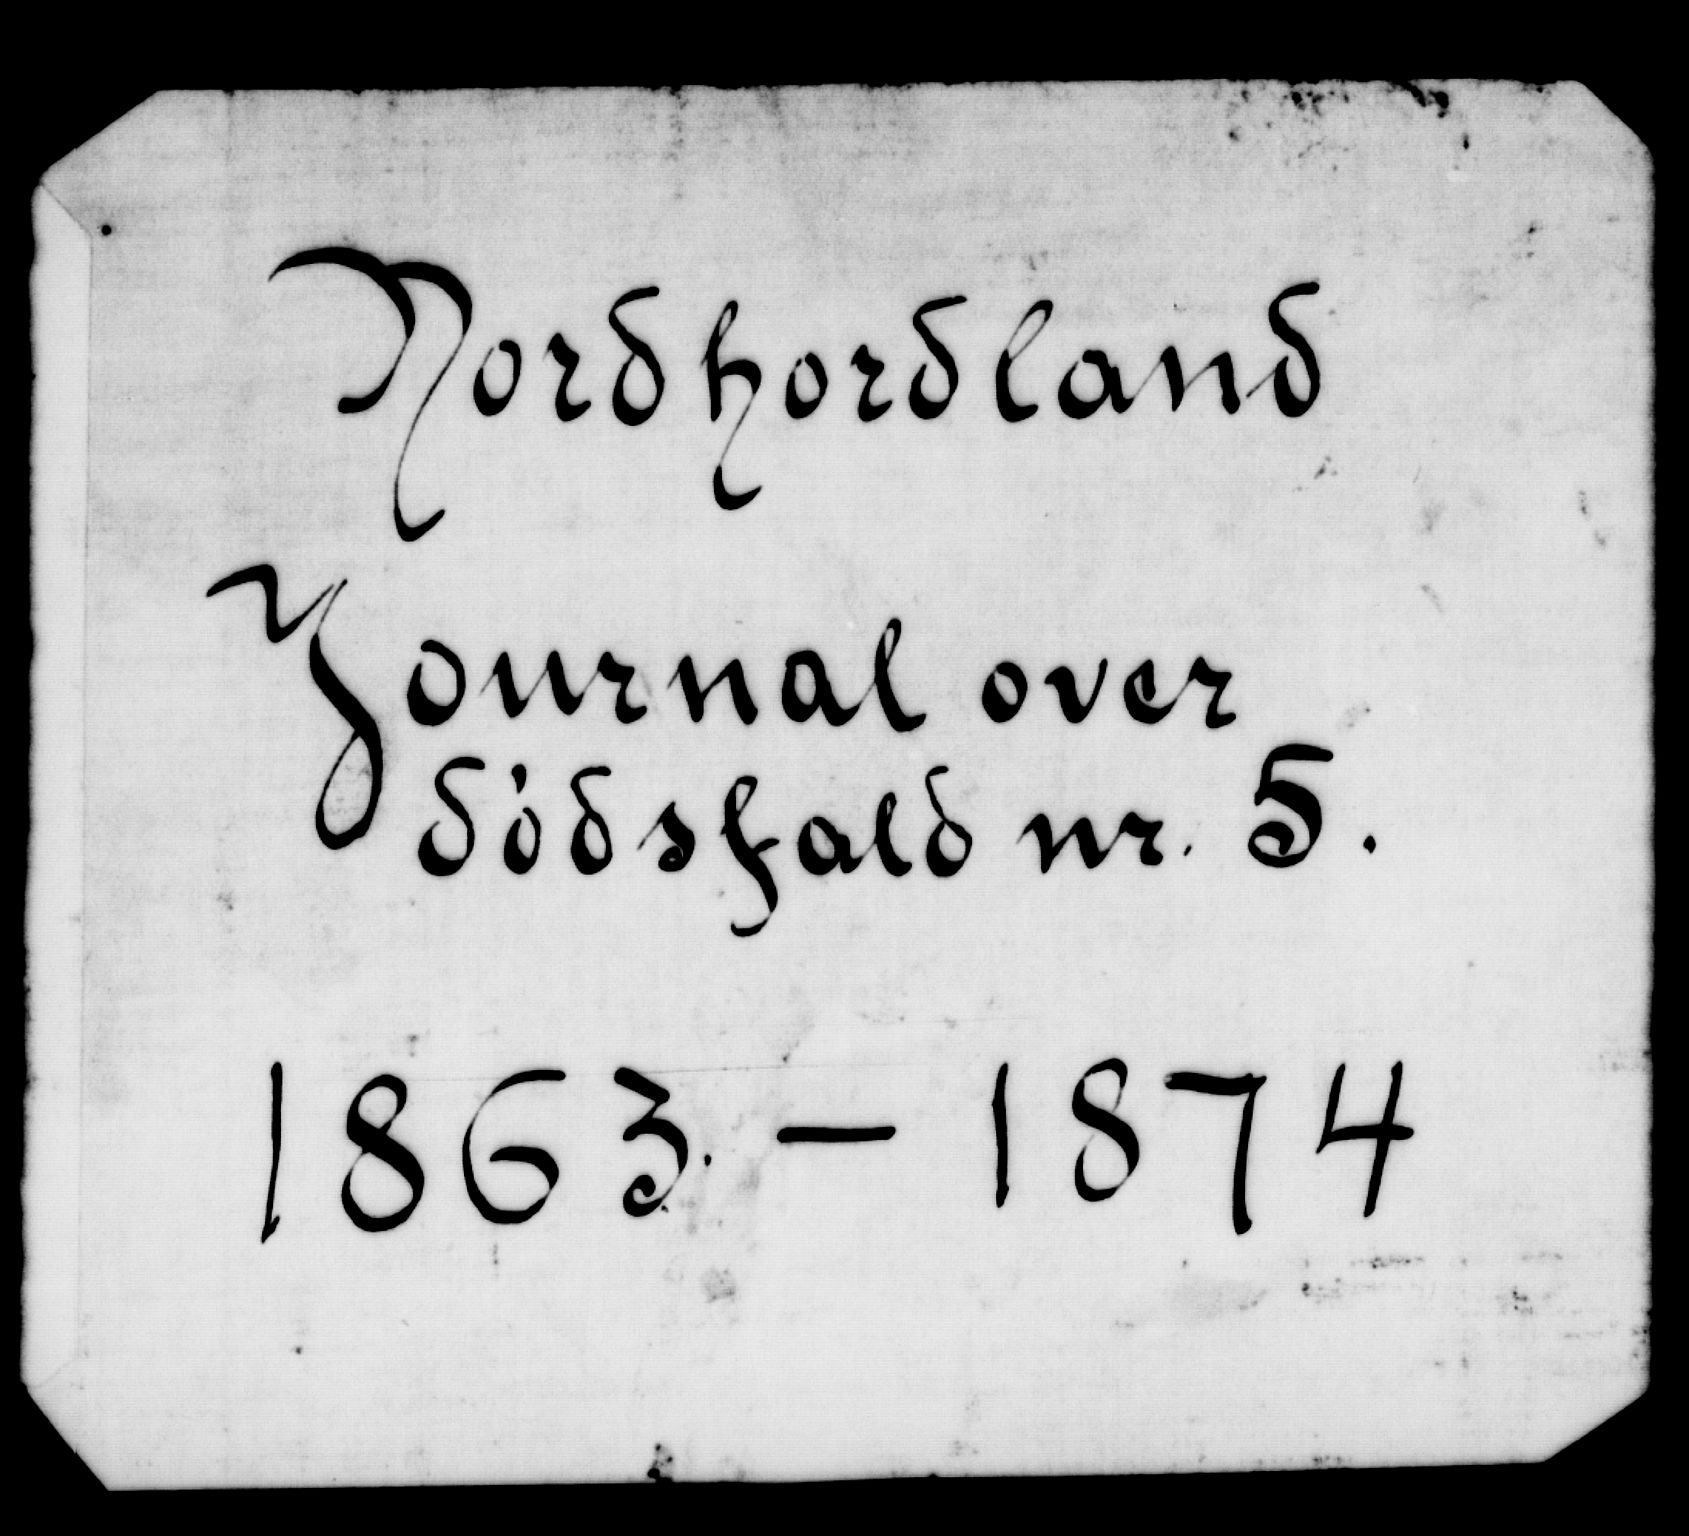 Nordhordland
Journal over
dödsfald nr. 5.
1863. — 1874